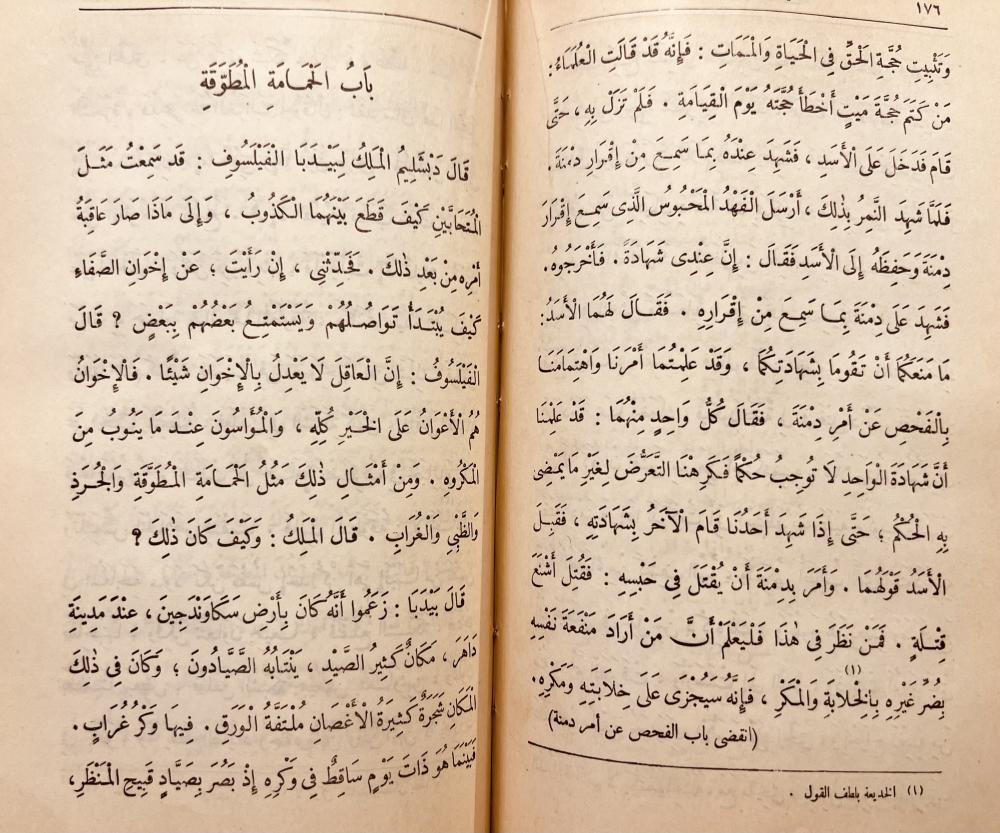 ١٧٦
وَتَثْبِيتِ حُجَّةِ الْحَقِّ فِي الْحَيَاةِ وَالْمَمَاتِ : فَإِنَّهُ قَدْ قَالَتِ الْعُلَمَاءُ :
مَنْ كَتَمَ حُجَّةَ مَيِّتٍ أَخْطَأَ حُجَّتَهُ يَوْمَ الْقِيَامَةِ . فَلَمْ تَزَلْ بِهِ ، حَتَّى
قَامَ فَدَخَلَ عَلَى الْأَسَدِ ، فَشَهِدَ عِنْدَهُ بِمَا سَمِعَ مِنْ إِقْرَارِ دِمْنَةَ .
فَلَمَّا شَهِدَ النَّمِرُ بِذٰلِكَ ، أَرْسَلَ الْفَهْدُ الْمَحْبُوسُ الَّذِى سَمِعَ إِقْرَارَ
دِمْنَةَ وَحَفِظَهُ إِلَى الْأَسَدِ فَقَالَ : إِنَّ عِنْدِى شَهَادَةً . فَأَخْرَجُوهُ .
فَشَهِدَ عَلَى دِمْنَةَ بِمَا سَمِعَ مِنْ إِقْرَارِهِ . فَقَالَ لَهُمَا الْأَسَدُ :
مَا مَنَعَكُمَا أَنْ تَقُومَا بِشَهَادَتِكُمَا ، وَقَدْ عَلِمْتُمَا أَمْرَنَا وَاهْتِمَامَنَا
بِالْفَحْصِ عَنْ أَمْرِ دِمْنَةَ ، فَقَالَ كُلُّ وَاحِدٍ مِنْهُمَا : قَدْ عَلِمْنَا
أَنَّ شَهَادَةَ الْوَاحِدِ لَا تُوجِبُ حُكْمًا فَكَرِهْنَا التَّعَرُّضَ لِغَيْرِ مَا يَمْضِى
بِهِ الْحُكْمُ ؛ حَتَّى إِذَا شَهِدَ أَحَدُنَا قَامَ الْآخَرُ بِشَهَادَتِهِ ، فَقَبِلَ
الْأَسَدُ قَوْلَهُمَا . وَأَمَرَ بِدِمْنَةَ أَنْ يُقْتَلَ فِى حَبْسِهِ : فَقُتِلَ أَشْنَعَ
قِتْلَةٍ . فَمَنْ نَظَرَ فِى هٰذَا فَلْيَعْلَمْ أَنَّ مَنْ أَرَادَ مَنْفَعَةَ نَفْسِهِ
بِضُرِّ غَيْرِهِ بِالْخِلَابَةِ (١) وَالْمَكْرِ ، فَإِنَّهُ سَيُجْزَى عَلَى خِلَابَتِهِ وَمَكْرِهِ .
(انقضى باب الفحص عن أمر دمنة)
(١) الخديعة بلطف القول .
بَابُ الْحَمَامَةِ الْمُطَوَّقَةِ
قَالَ دَبْشَلِيمُ الْمَلِكُ لِبَيْدَبَا الْفَيْلَسُوفِ : قَد سَمِعْتُ مَثَلَ
الْمُتَحَابَّيْنِ كَيْفَ قَطَعَ بَيْنَهُمَا الْكَذُوبُ ، وَإِلَى مَاذَا صَارَ عَاقِبَةُ
أَمْرِهِ مِنْ بَعْدِ ذٰلِكَ . فَحَدِّثْنِى ، إِنْ رَأَيْتَ ؛ عَنْ إِخْوَانِ الصَّفَاءِ
كَيْفَ يُبْتَدَأُ تَوَاصُلُهُمْ وَيَسْتَمْتِعُ بَعْضُهُمْ بِبَعْضٍ ؟ قَالَ
الْفَيْلَسُوفُ : إِنَّ الْعَاقِلَ لَا يَعْدِلُ بِالْإِخْوَانِ شَيْئًا . فَالْإِخْوَانُ
هُمُ الْأَعْوَانُ عَلَى الْخَيْرِ كُلِّهِ ، وَالْمُؤَاسُونَ عِنْدَ مَا يَنُوبُ مِنَ
الْمَكْرُوهِ . وَمِنْ أَمْثَالِ ذٰلِكَ مَثَلُ الْحَمَامَةِ الْمُطَوَّقَةِ وَالْجُرَذِ
وَالظَّبْىِ وَالْغُرَابِ . قَالَ الْمَلِكُ : وَكَيْفَ كَانَ ذٰلِكَ ؟
قَالَ بَيْدَبَا : زَعَمُوا أَنَّهُ كَانَ بِأَرْضِ سَكَاوَنْدَجِينَ ، عِنْدَ مَدِينَةِ
دَاهَرَ ، مَكَانٌ كَثِيرُ الصَّيْدِ ، يَنْتَابُهُ الصَّيَّادُونَ ؛ وَكَانَ فِى ذٰلِكَ
الْمَكَانِ شَجَرَةٌ كَثِيرَةُ الْأَغْصَانِ مُلْتَفَّةُ الْوَرَقِ . فِيهَا وَكْرُ غُرَابٍ .
فَبَيْنَمَا هُوَ ذَاتَ يَوْمٍ سَاقِطٌ فِى وَكْرِهِ إِذْ بَصُرَ بِصَيَّادٍ قَبِيحِ الْمَنْظَرِ ،